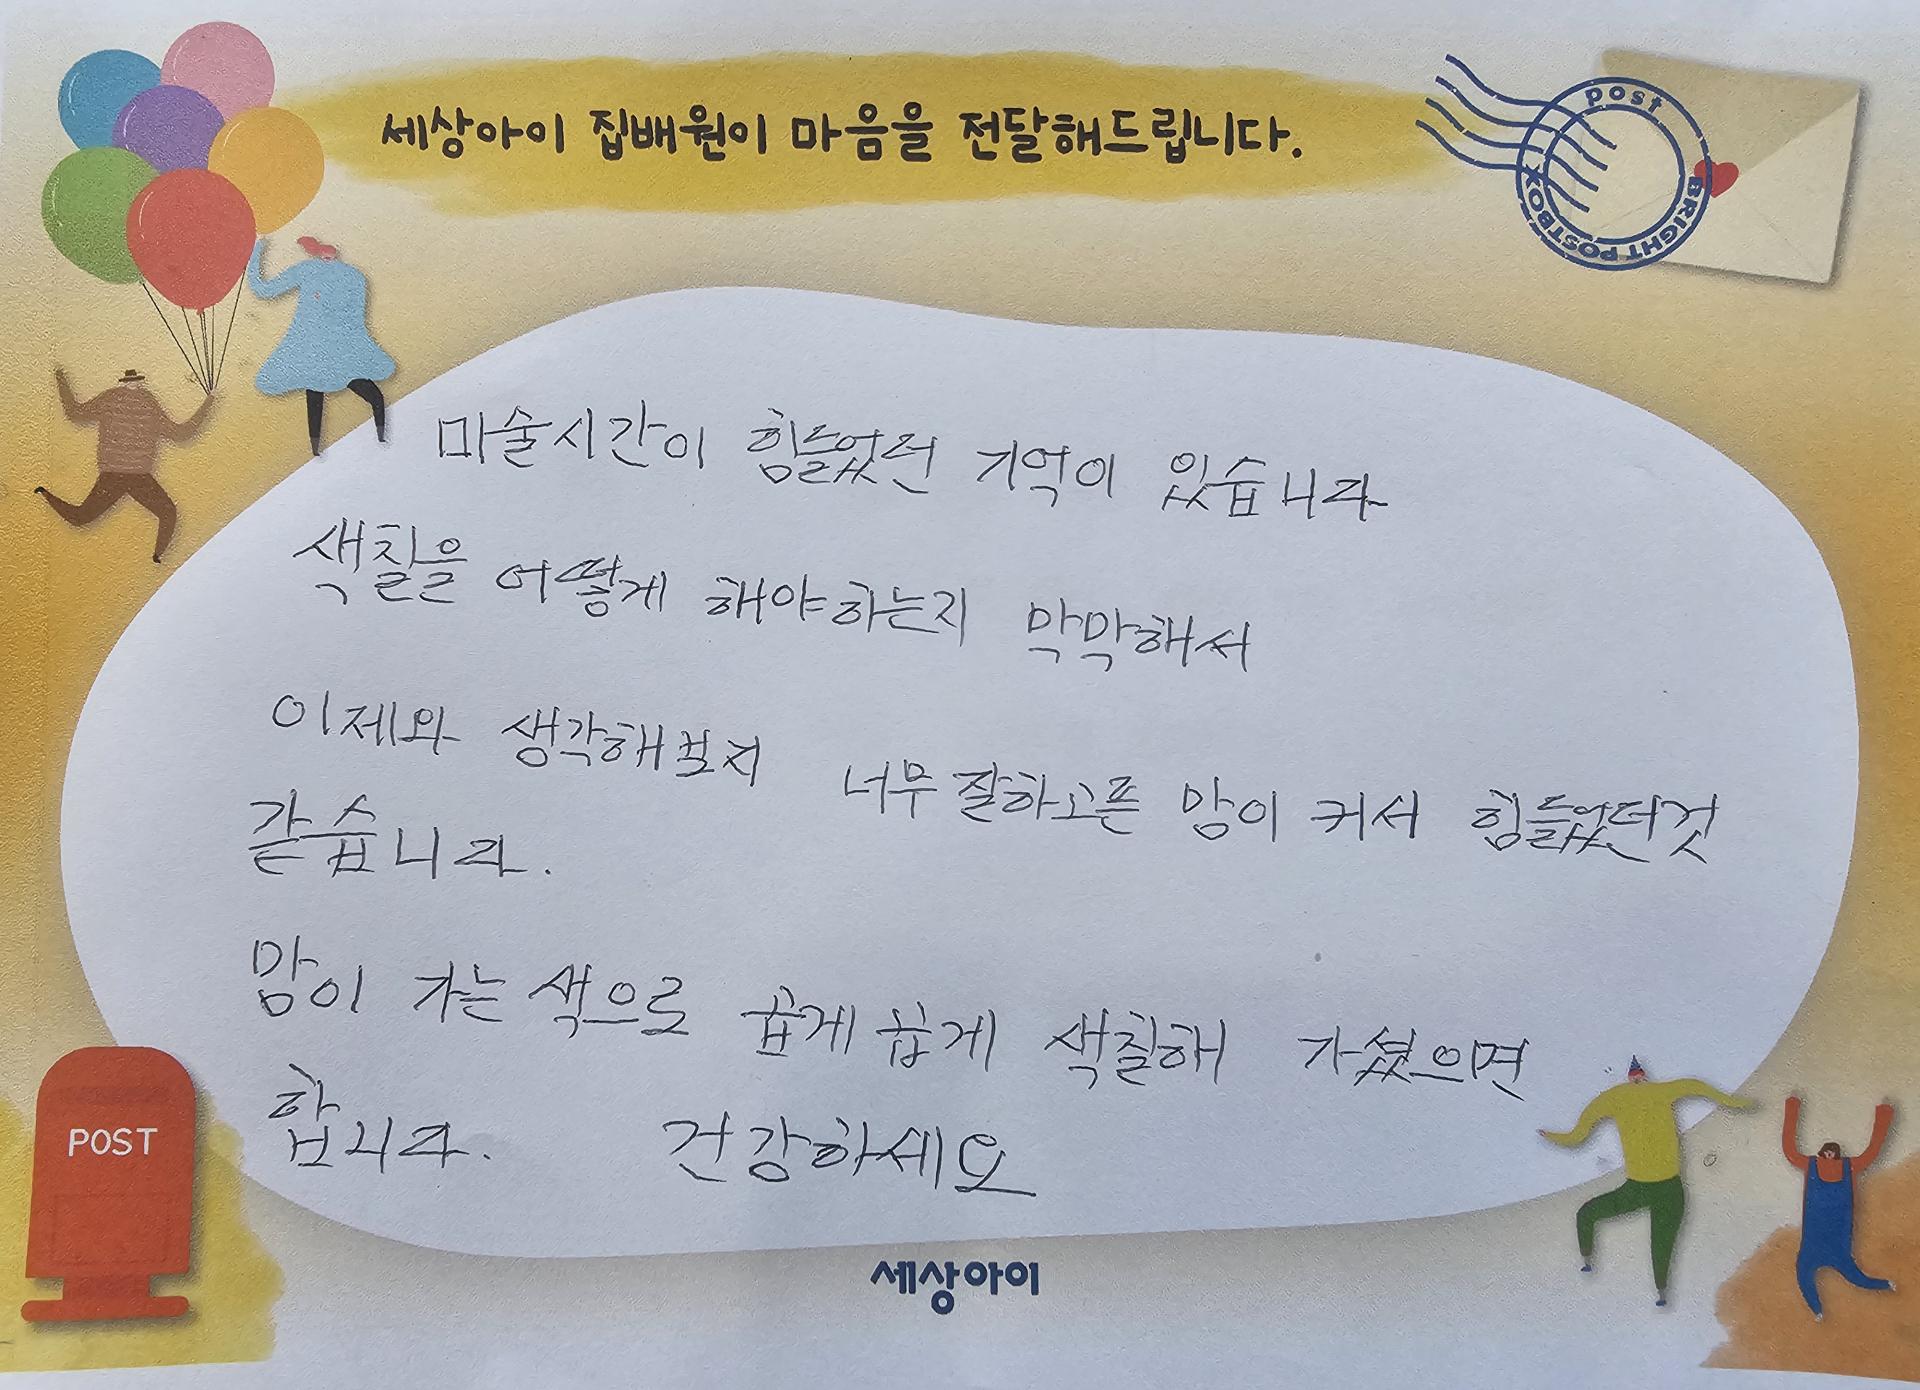 세상아이 집배원이 마음을 전달해드립니다.
post
BRIGHT POSTBOX
미술시간이 힘들었던 기억이 있습니다
색칠을 어떻게 해야하는지 막막해서
이제와 생각해보지 너무 잘하고픈 맘이 커서 힘들었던것
같습니다.
맘이 가는 색으로 곱게 곱게 색칠해 가셨으면
합니다. 건강하세요
POST
세상아이